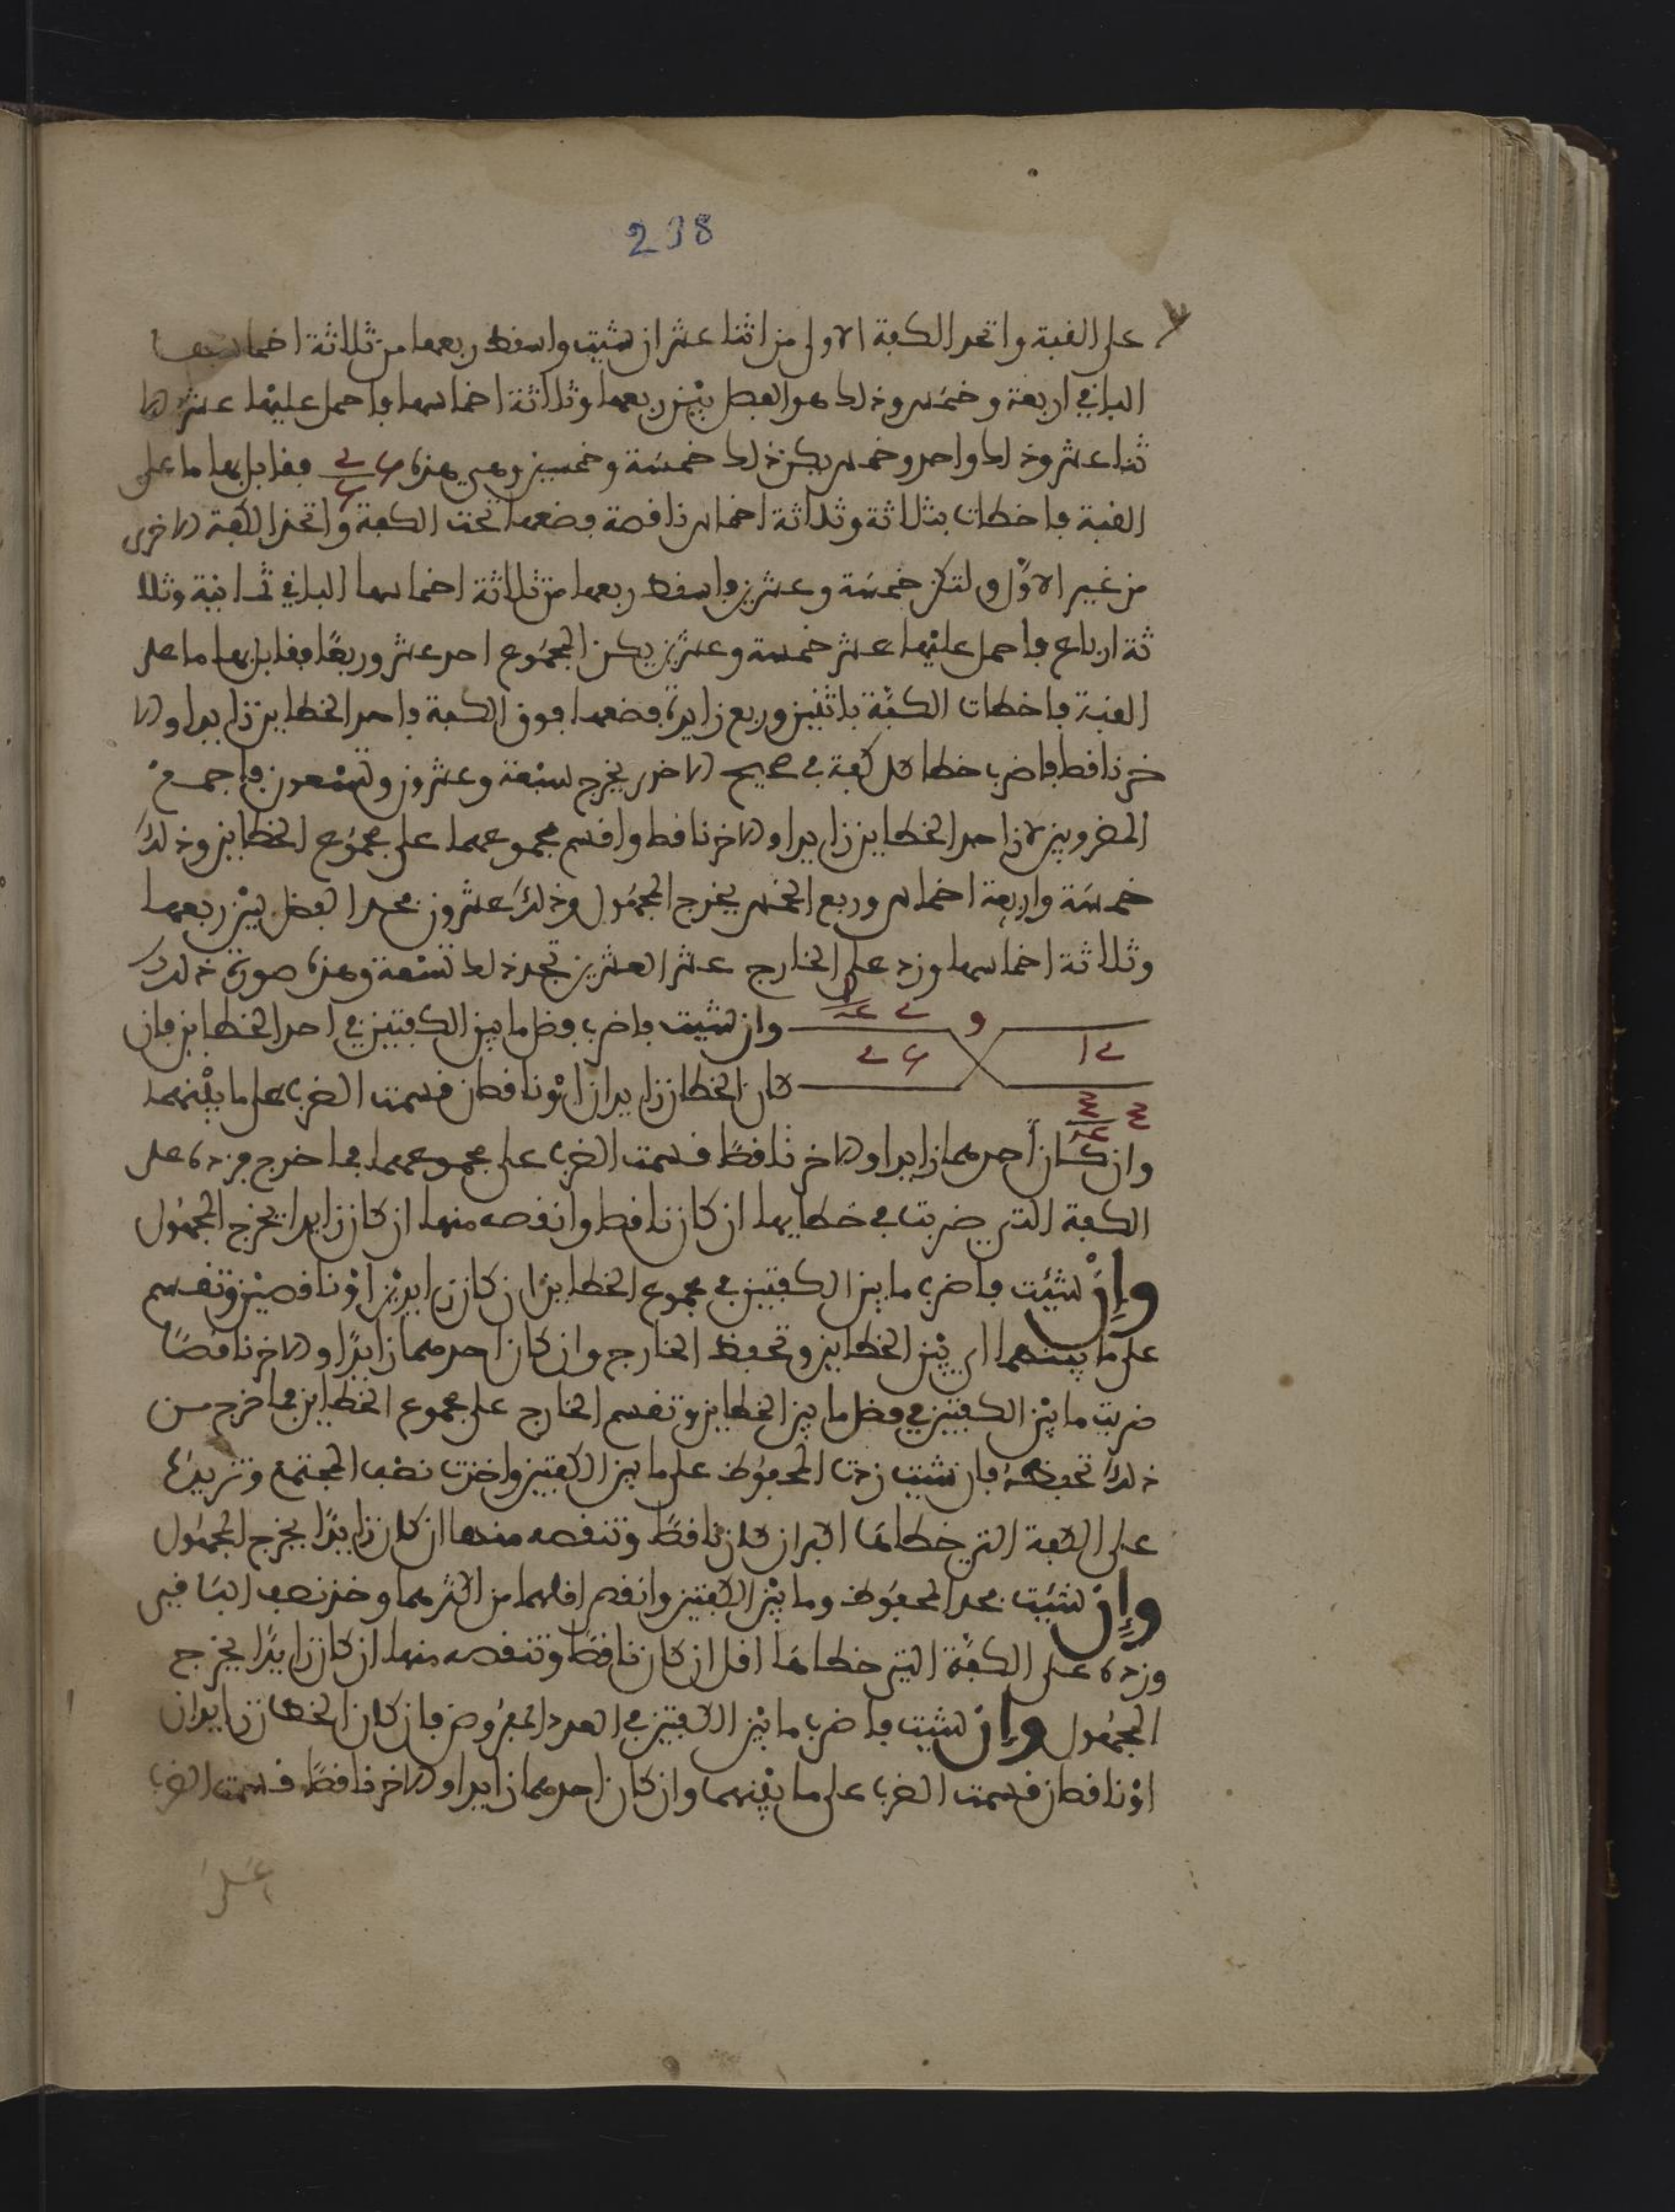 238
على القبة واتخذ الكفة الاولى من اثنا عشر ان شئت واسقط ربعها من ثلاثة اخماسها
الباقي اربعة وخمس وذلك هو الفضل بين ربعها وثلاثة اخماسها فاحمل عليها عشر الا
ثنا عشر وذلك واحد وخمس يكن ذلك خمسة وخمسين وهي هذه فقابل بها ما على
القبة فاخطات بثلاثة وثلاثة اخماس ناقصة فضعها تحت الكفة واتخذ الكفة الاخرى
من غير الاول ولتكن خمسة وعشرين فاسقط ربعها من ثلاثة اخماسها الباقي ثمانية وثلا
ثة ارباع فاحمل عليها عشر خمسة وعشرين يكن المجموع احد عشر وربعا فقابل بها ما على
القبة فاخطات الكفة باثنين وربع زايدة فضعها فوق الكفة فاحد الخطاين زايدا والا
خر ناقط فاضرب خطا كل كفة في صحيح الاخرى يخرج سبعة وعشرون وتسعون فاجمع
المضروبين لان احد الخطاين زايدا والاخر ناقط واقسم مجموعهما على مجموع الخطاين وذلك
خمسة واربعة اخماس وربع الخمس يخرج المجهول وذلك عشرون فخذ الفضل بين ربعها
وثلاثة اخماسها وزد على الخارج عشر العشرين تجد ذلك تسعة وهذه صورة ذلك
وان شيت فاضرب فضل ما بين الكفتين في احد الخطاين فان
كان الخطان زايدان او ناقطان قسمت الضرب على ما بينهما
وان كان احدهما زايدا والاخر ناقطا قسمت الضرب على مجموعهما فما خرج فزده على
الكفة التي ضربت في خطايها ان كان ناقط وانقصه منها ان كان زايدا يخرج المجهول
وإن شيت فاضرب ما بين الكفتين في مجموع الخطاين ان كان زايدين او ناقصين وتقسم
على ما بينهما اي بين الخطاين وتحفظ الخارج وان كان احدهما زايدا والاخر ناقصا
ضربت ما بين الكفتين في فضل ما بين الخطاين وتقسم الخارج على مجموع الخطاين فما خرج من
ذلك تحفظه فان شيت زدت المحفوظ على ما بين الكفتين واخذت نصف المجتمع وتزيده
على الكفة التي خطاها اكبر ان كان ناقطا وتنقصه منها ان كان زايدا يخرج المجهول
وإن شيت فخذ المحفوظ وما بين الكفتين وانقص اقلهما من اكثرهما وخذ نصف الباقي
وزده على الكفة التي خطاها اقل ان كان ناقطا وتنقصه منها ان كان زايدا يخرج
المجهول وإن شيت فاضرب ما بين الكفتين في العدد المفروض فان كان الخطان زايدان
او ناقطان قسمت الضرب على ما بينهما وان كان احدهما زايدا والاخر ناقطا قسمت الضرب
على